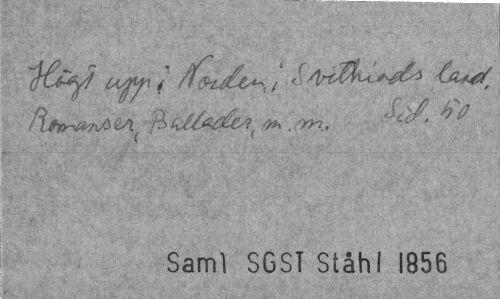 Högt upp i Norden, i Svithiods land.
Romanser, Ballader, m. m. Sid. 50
Saml SGST Ståhl 1856